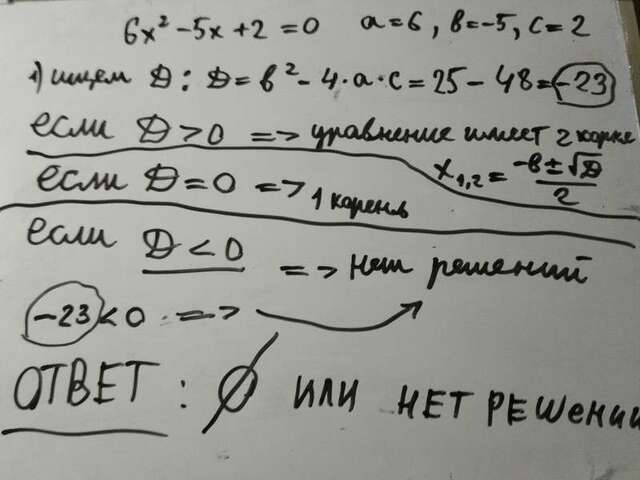 6x² - 5x + 2 = 0   a = 6, в = -5, c = 2
1) ищем D: D = в² - 4·a·c = 25 - 48 = -23
если D > 0 => уравнение имеет 2 корня
x₁,₂ = (-в ± √D)/2
если D = 0 => 1 корень
если D < 0 => нет решений
-23 < 0 =>
ОТВЕТ: ∅ ИЛИ НЕТ РЕШЕНИЙ